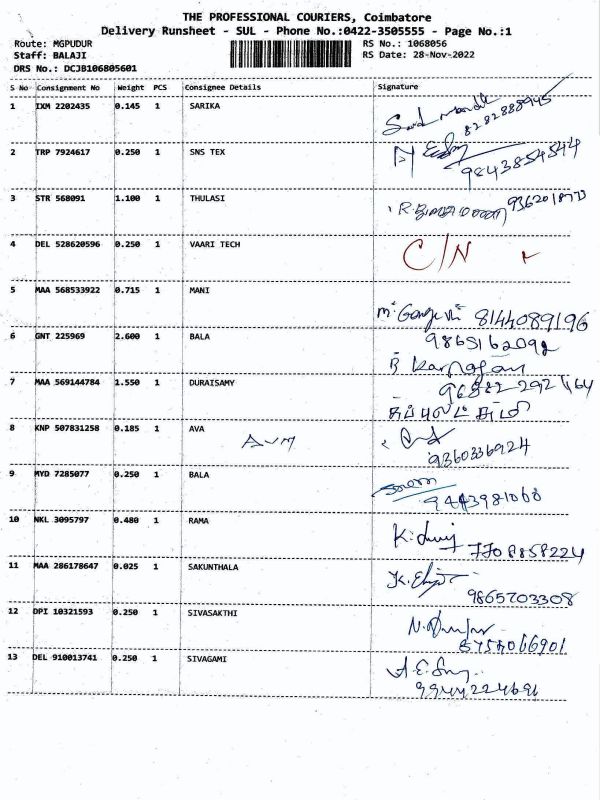 THE PROFESSIONAL COURIERS, Coimbatore
Delivery Runsheet - SUL - Phone No.:0422-3505555 - Page No.:1
Route: MGPUDUR RS No.: 1068056
Staff: BALAJI RS Date: 28-Nov-2022
DRS No.: DCJB106805601
S No Consignment No Weight PCS Consignee Details Signature
1 IXM 2202435 0.145 1 SARIKA
8282888945
2 TRP 7924617 0.250 1 SNS TEX
9843854544
3 STR 568091 1.100 1 THULASI
4 DEL 528620596 0.250 1 VAARI TECH C/N
5 MAA 568533922 0.715 1 MANI
8144089196
6 GNT 225969 2.600 1 BALA 9865162092
7 MAA 569144784 1.550 1 DURAISAMY
8 KNP 507831258 0.185 1 AVA
AVM 9360336924
9 MYD 7285077 0.250 1 BALA
9443981060
10 NKL 3095797 0.480 1 RAMA
7708858224
11 MAA 286178647 0.025 1 SAKUNTHALA
9865703308
12 DPI 10321593 0.250 1 SIVASAKTHI
13 DEL 910013741 0.250 1 SIVAGAMI